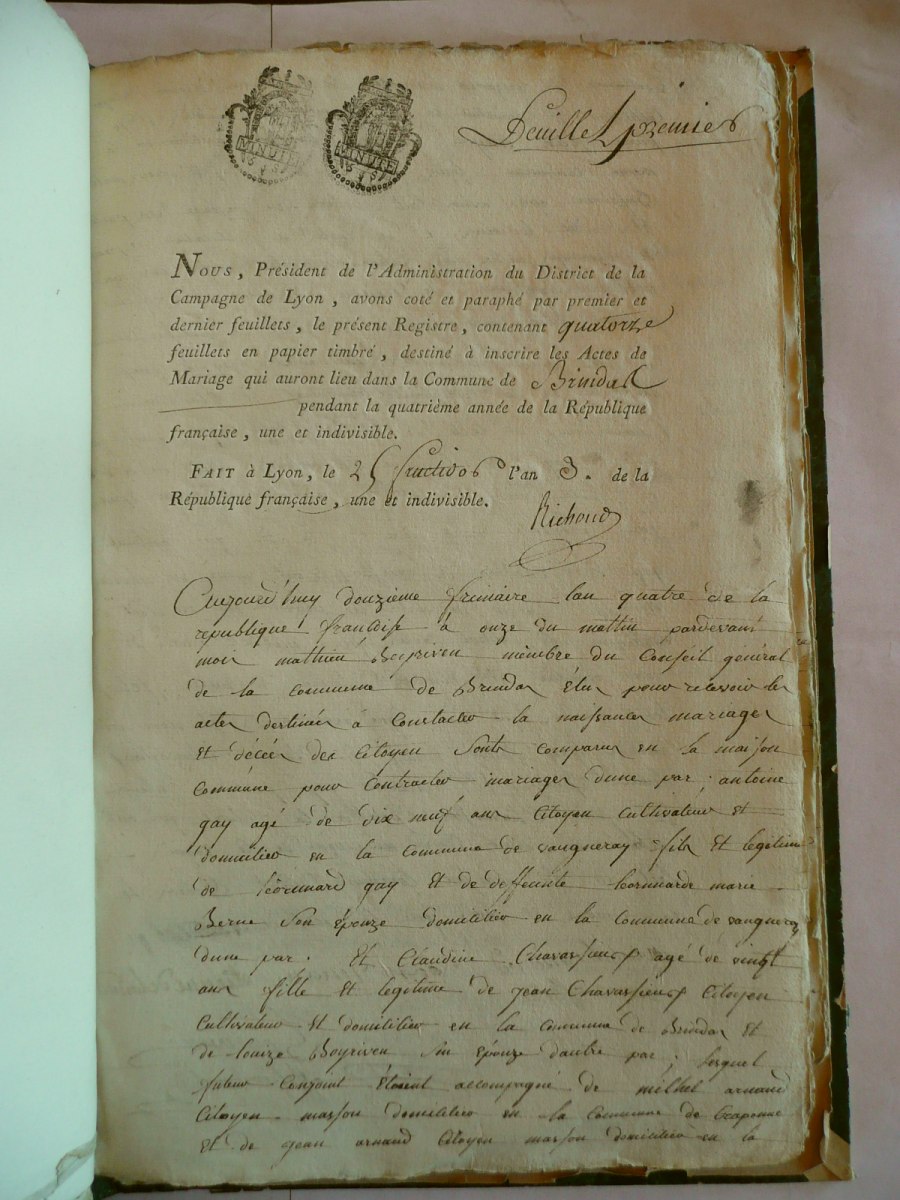 MINUTE
MINUTE
Feuille premier
Nous, Président de l'Administration du District de la
Campagne de Lyon, avons coté et paraphé par premier et
dernier feuillets, le présent Registre, contenant quatorze
feuillets en papier timbré, destiné à inscrire les Actes de
Mariage qui auront lieu dans la Commune de Brindas
pendant la quatrième année de la République
française, une et indivisible.
Fait à Lyon, le 25 fructidor l'an 3. de la
République française, une et indivisible.
Richoud
Aujourd'huy douzième frimaire lan quatre de la
republique francoise à onze du mattin pardevant
moi mathieu Boyriven mêmbre du Conseil général
de la commune de Brindas Élus pour recevoir les
actes destinés à Constater la naissances mariages
et décés des Citoyen Sont comparus en la maison
Commune pour Contracter mariages dune par. antoine
gay agé de dix neuf ans Citoyen Cultivateur et
domicilier en la commune de vaugneray fils et legitime
de gay et de deffeinte leonnarde marie
Berne son épouze domicilier en la Commune de vaugneray
dune par. Et Claudine Chavassieux agé de veingt
ans fille et legitime de jean Chavassieux Citoyen
Cultivateur et domicilier en la Commune de Brindas et
de louize Boyriven son epouze dautre par. lesquel
futeur Conjoint étoient accompagné de michel arnaud
Citoyen masson domicilier en la commune de Craponne
et de jean arnaud Citoyen masson domicilier en la